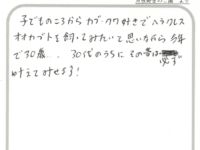 子どものころからカブ・クワ好きでヘラクレス
オオカブトを飼ってみたいと思いながら今年
で30歳。30代のうちにその夢は必ず
叶えてみせよう!